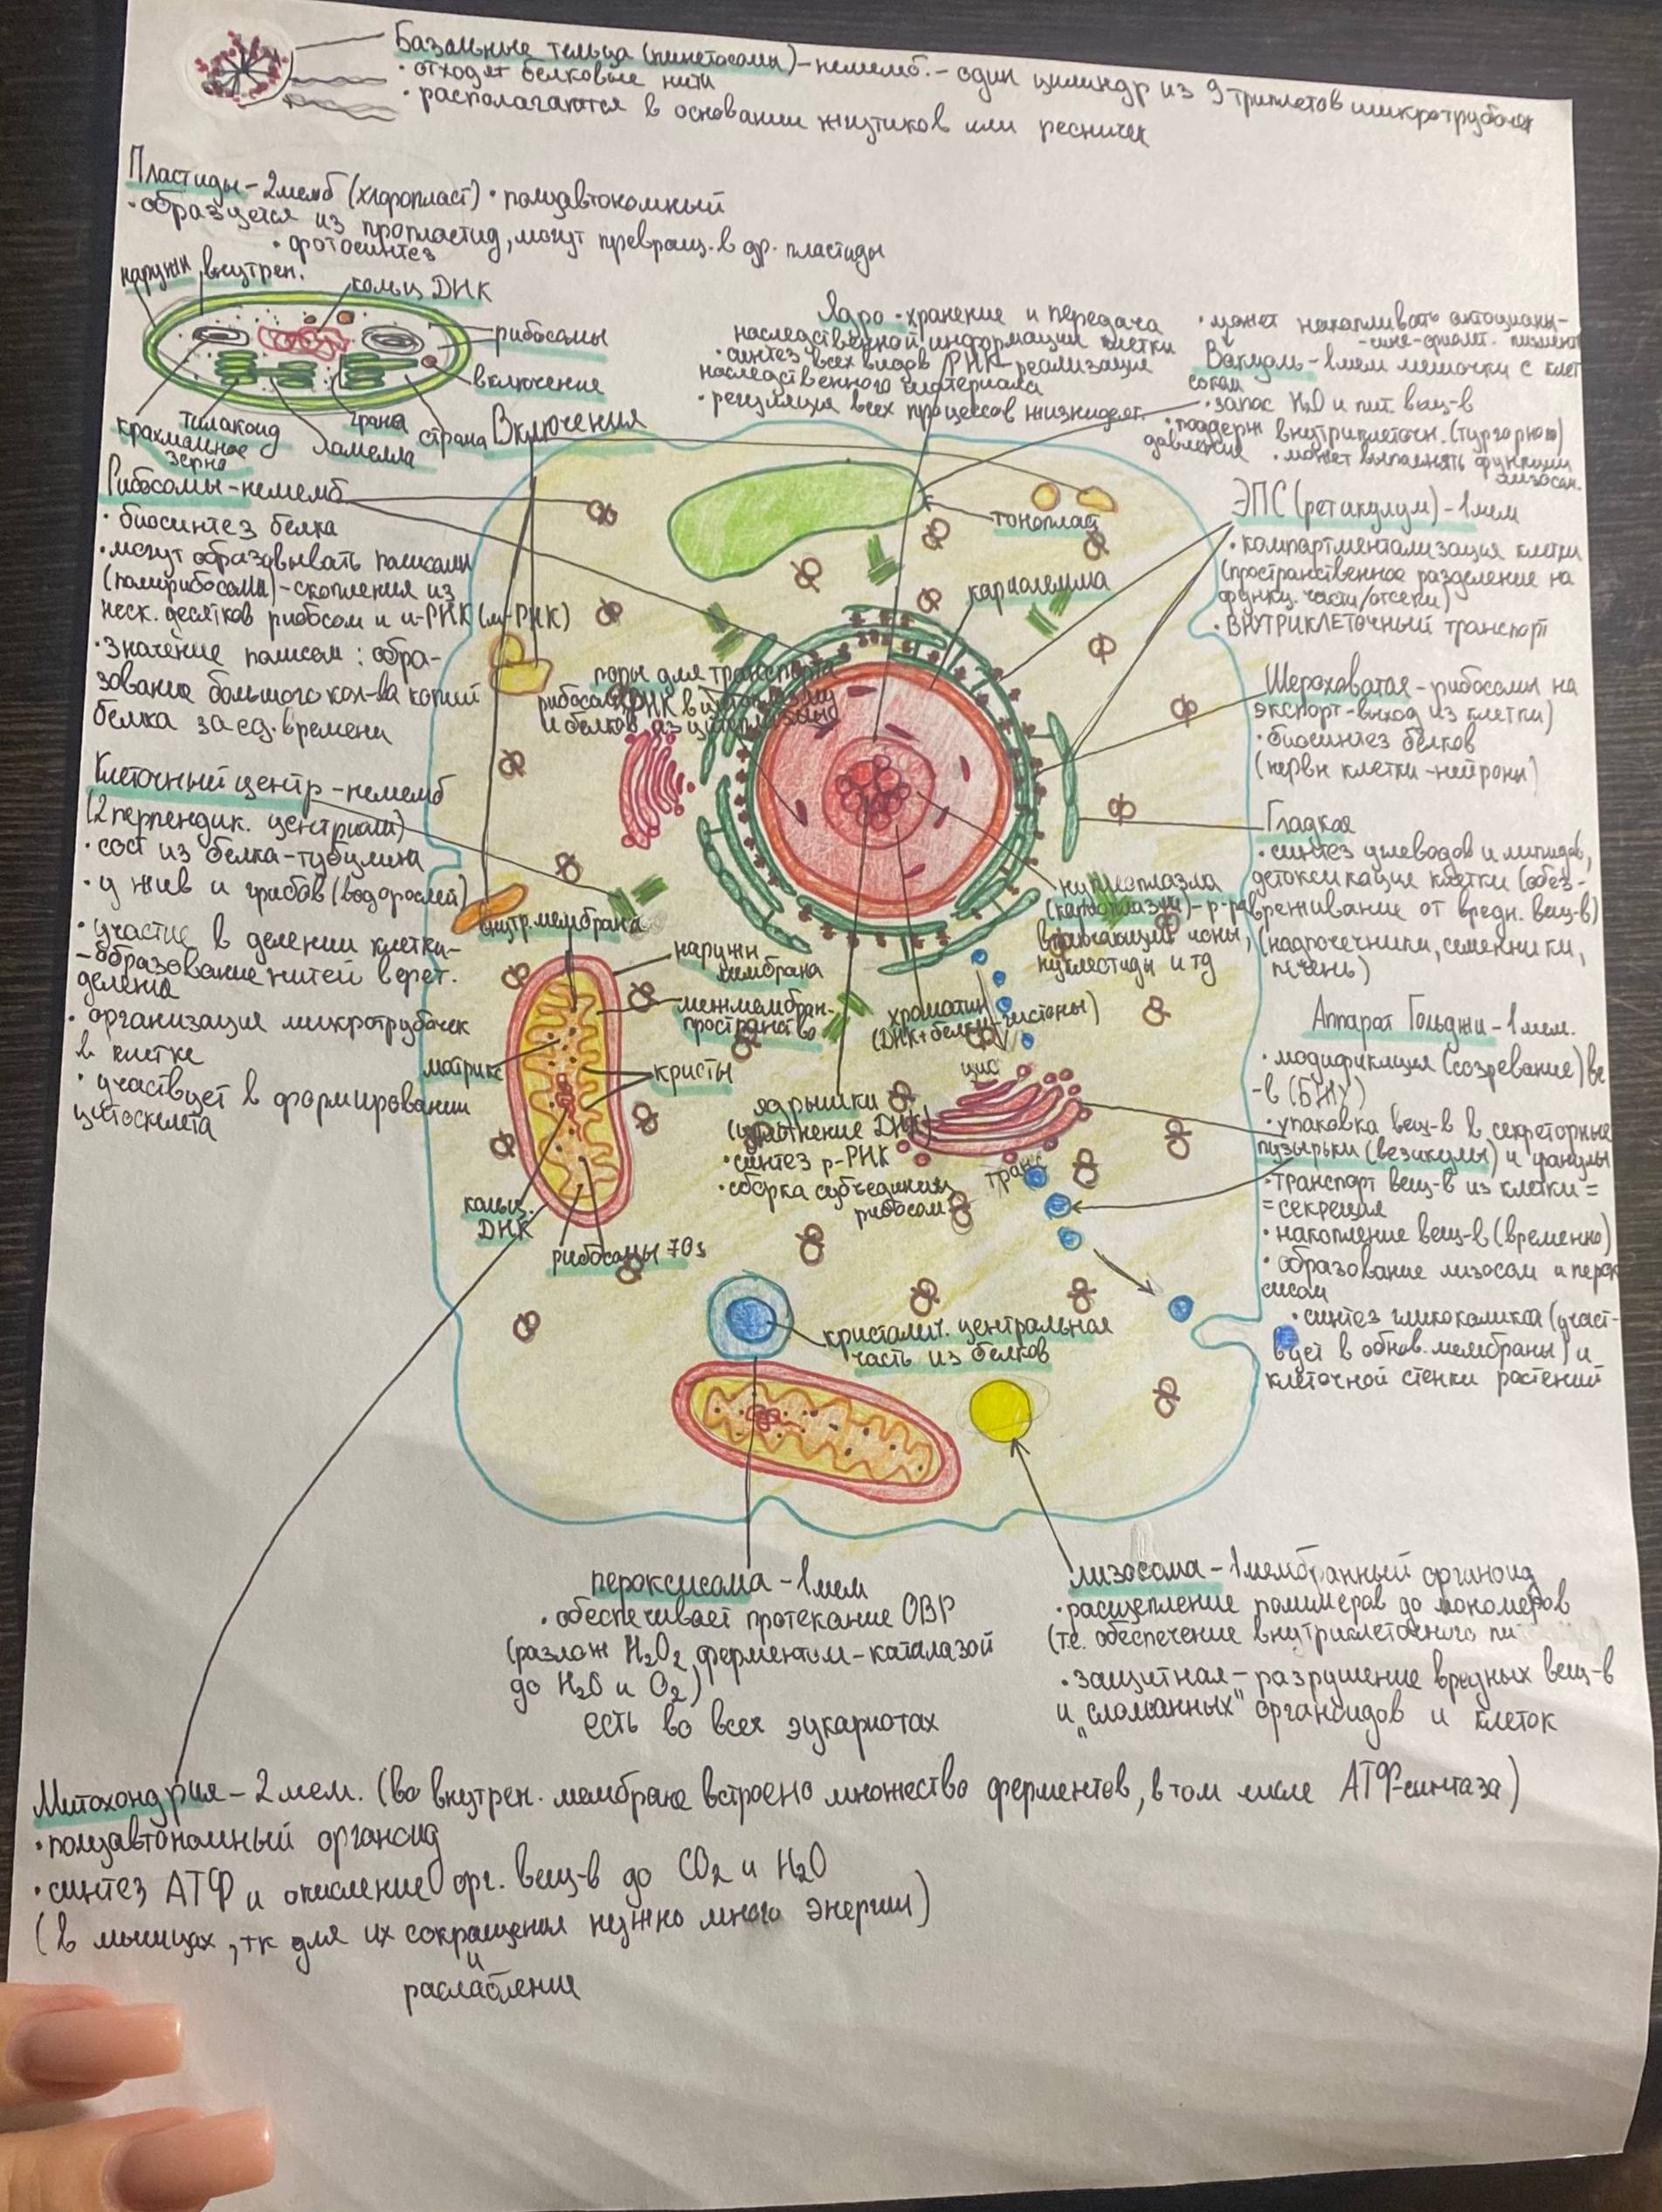 Базальные тельца (кинетосомы) - немемб. - один цилиндр из 9 триплетов микротрубочек
• отходят белковые нити
• располагаются в основании жгутиков или ресничек
Пластиды - 2мемб (хлоропласт) • полуавтономный
• образуется из пропластид, могут превращ. в др. пластиды
• фотосинтез
наружн внутрен.
кольц ДНК
рибосомы
включение
тилакоид
грана
строма
крахмальное
зерно
ламелла
Включения
Ядро • хранение и передача
наследственной информации клетки
• синтез всех видов РНК - реализация
наследственного материала
• регуляция всех процессов жизнидеят.
• может накапливать антоцианы -
- сине-фиолет. пигмент
Вакуоль - 1мем мешочки с клет
соком
• запас H₂O и пит. вещ-в
• поддерж внутриклеточн. (тургорного)
давления • может выполнять функции
лизосом.
тонопласт
Рибосомы - немемб
• биосинтез белка
• могут образовывать полисомы
(полирибосомы) - скопления из
неск. десятков рибосом и и-РНК (м-РНК)
• значение полисом: обра-
зование большого кол-ва копий
белка за ед. времени
кариолемма
поры для транспорта
рибосом, РНК в
и белков из цитоплазмы
ЭПС (ретикулум) - 1мем
• компартментализация клетки
(пространственное разделение на
функц. части/отсеки)
• ВНУТРИКЛЕТОЧНЫЙ транспорт
Шероховатая - рибосомы на
экспорт - выход из клетки)
• биосинтез белков
(нервн клетки - нейроны)
Гладкая
• синтез углеводов и липидов,
детоксикация клетки (обез-
вреживание от вредн. вещ-в)
(надпочечники, семенники,
печень)
Клеточный центр - немемб
(2 перпендик. центриоли)
• сост из белка - тубулина
• у жив и грибов (водорослей)
• участие в делении клетки -
- образование нитей верет.
деления
• организация микротрубочек
в клетке
• участвует в формировании
цитоскелета
нуклеоплазма
(кариоплазма) - р-р
включающий ионы,
нуклеотиды и тд
хроматин
(ДНК + белки - гистоны)
внутр. мембрана
наружн
мембрана
межмембран-
пространство
матрикс
кристы
кольц.
ДНК
рибосомы 70s
ядрышки
(уплотнение ДНК)
• синтез р-РНК
• сборка субъединиц
рибосом
цис
транс
Аппарат Гольджи - 1мем.
• модификация (созревание) ве
-в (БЖУ)
• упаковка вещ-в в секреторные
пузырьки (везикулы) и гранулы
• транспорт вещ-в из клетки =
= секреция
• накопление вещ-в (временно)
• образование лизосом и перок
сисом
• синтез гликокаликса (участ-
вует в обнов. мембраны) и
клеточной стенки растений
кристалич. центральная
часть из белков
пероксисома - 1мем
• обеспечивает протекание ОВР
(разлож H₂O₂ ферментом - каталазой
до H₂O и O₂)
есть во всех эукариотах
лизосома - 1мембранный органоид
• расщепление полимеров до мономеров
(т.е. обеспечение внутриклеточного пи
• защитная - разрушение вредных вещ-в
и „сломанных" органоидов и клеток
Митохондрия - 2мем. (во внутрен. мембрана встроено множество ферментов, в том числе АТФ-синтаза)
• полуавтономный органоид
• синтез АТФ и окисление орг. вещ-в до CO₂ и H₂O
(в мышцах, тк для их сокращения нужно много энергии)
и
расслабление